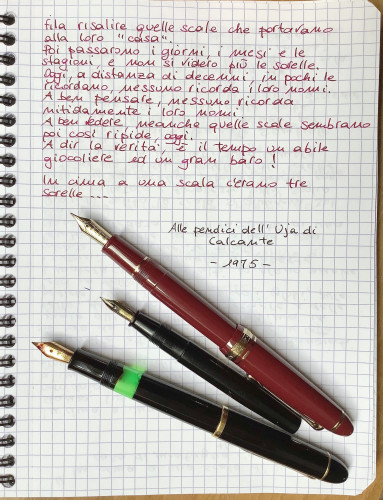 fila risalire quelle scale che portavano
alla loro "casa".
Poi passarono i giorni, i mesi e le
stagioni, e non si videro più le sorelle.
Oggi, a distanza di decenni, in pochi le
ricordano, nessuno ricorda i loro nomi.
A ben pensare, nessuno ricorda
nitidamente i loro nomi.
A ben vedere, neanche quelle scale sembrano
poi così ripide, oggi.
A dir la verità, è il tempo un abile
giocoliere ed un gran baro!
In cima a una scala c'erano tre
sorelle ...
Alle pendici dell'Uja di
Calcante
- 1975 -